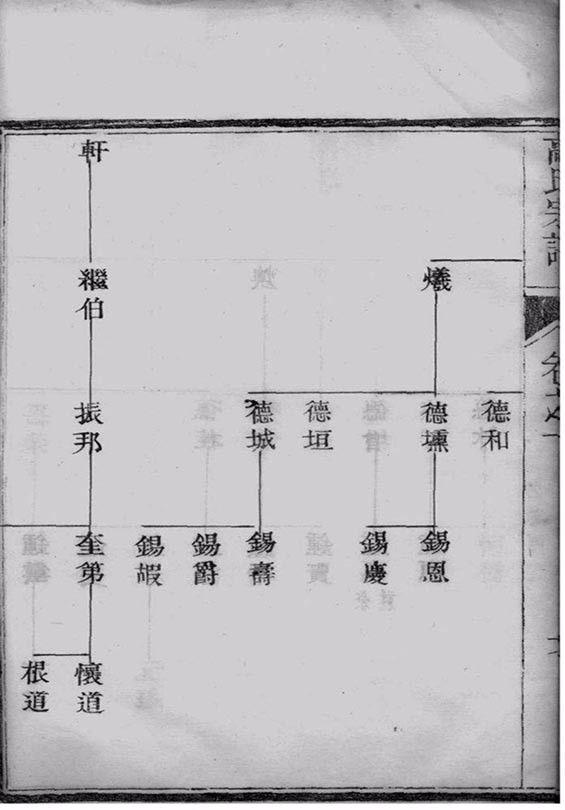 高氏宗譜
卷之一
爔
德和
德壎
德垣
德城
錫恩
錫慶
錫壽
錫爵
錫嘏
軒
繼伯
振邦
奎第
懷道
根道